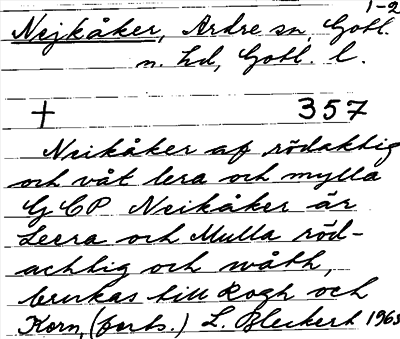 1-2
Nejkåker, Ardre sn, Gotl.
n. hd, Gotl. l.
+ 357
Neikåker af rödaktig
och våt lera och mylla
G CP Neikåker är
Leera och Mulla röd-
achtig och wåth,
brukas till Rogh och
Korn, (forts.) L. Bleckert 1965